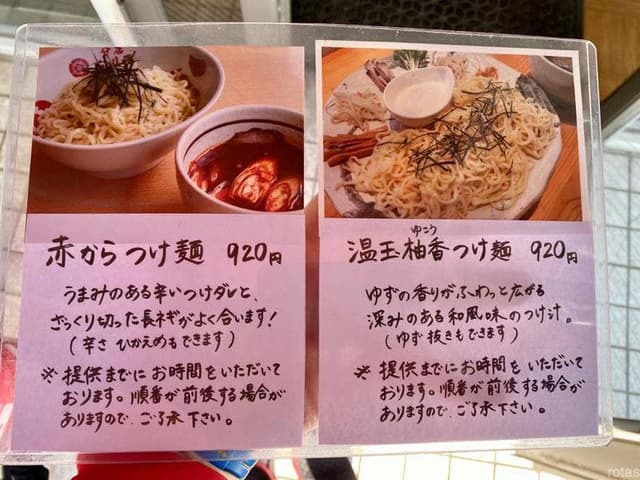 赤からつけ麺 920円
うまみのある辛いつけダレと、
ざっくり切った長ネギがよく合います!
(辛さ ひかえめもできます)
※ 提供までにお時間をいただいて
おります。順番が前後する場合が
ありますので、ご了承下さい。
ゆこう
温玉柚香つけ麺 920円
ゆずの香りがふわっと広がる
深みのある和風味のつけ汁。
(ゆず抜きもできます)
※ 提供までにお時間をいただいて
おります。順番が前後する場合が
ありますので、ご了承下さい。
rotas